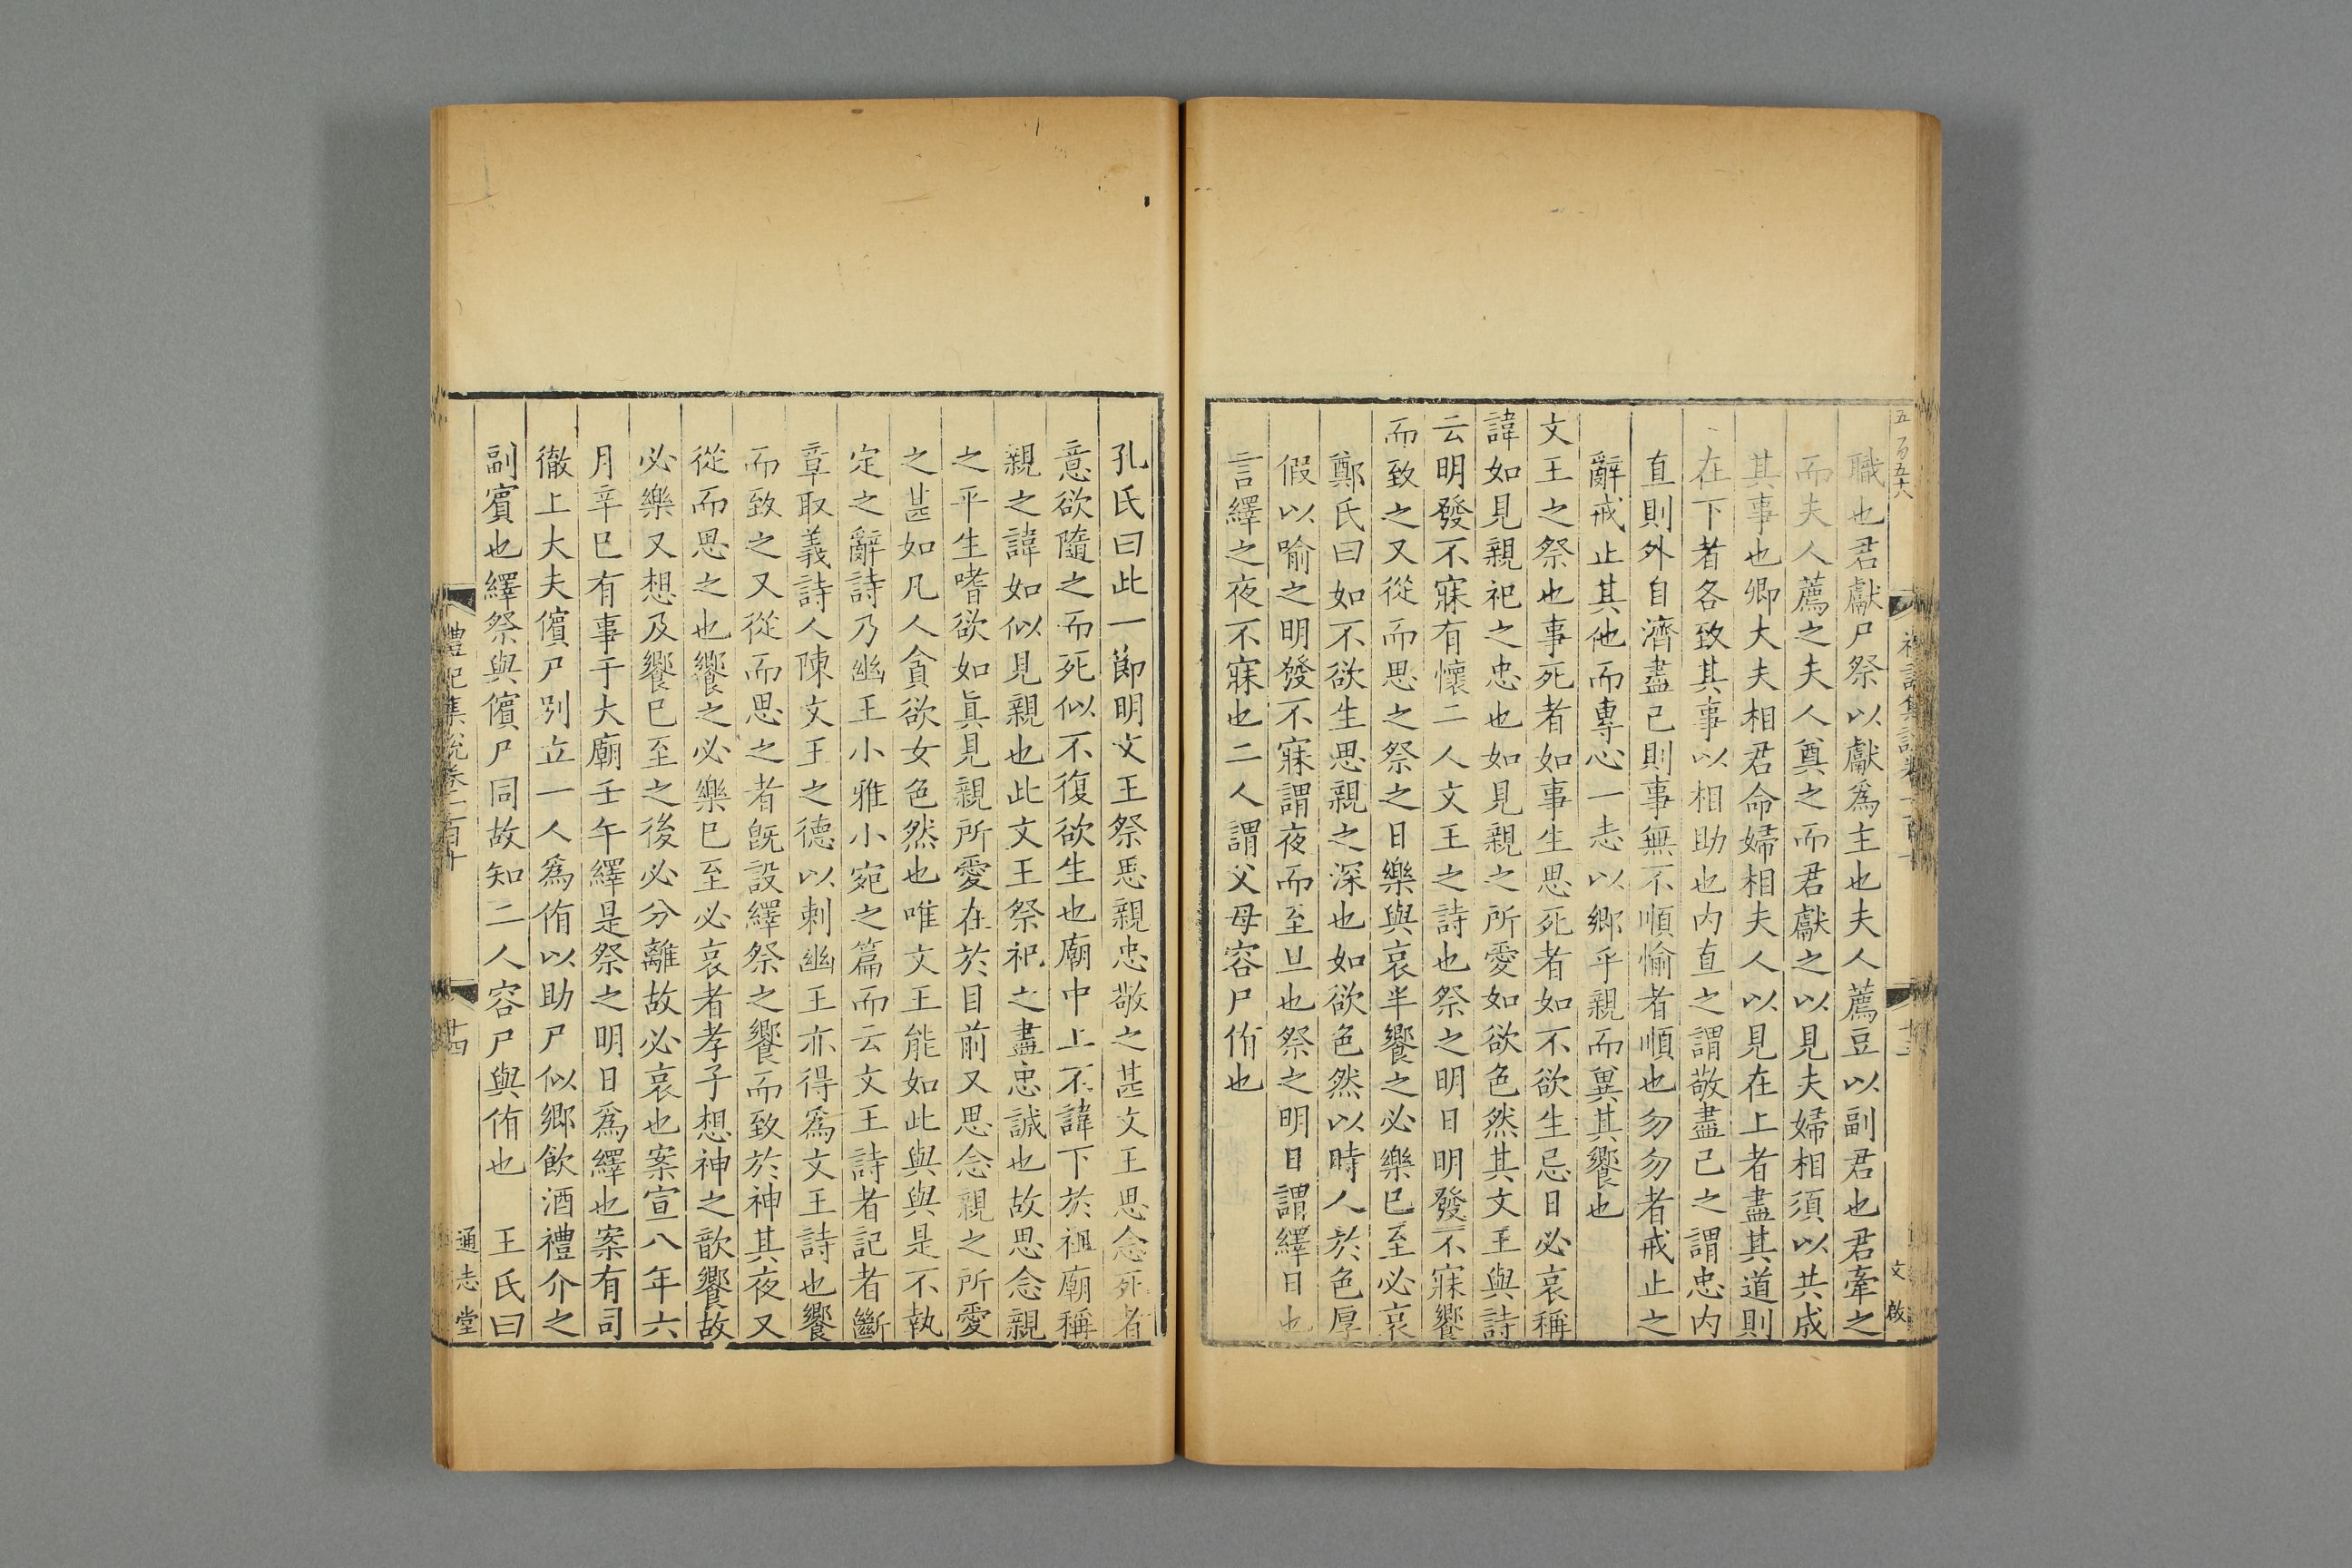 職也君獻尸祭以獻爲主也夫人薦豆以副君也君牽之
而夫人薦之夫人奠之而君獻之以見夫婦相須以共成
其事也卿大夫相君命婦相夫人以見在上者盡其道則
在下者各致其事以相助也内直之謂敬盡己之謂忠内
直則外自濟盡己則事無不順愉者順也勿勿者戒止之
辭戒止其他而專心一志以鄉乎親而冀其饗也
文王之祭也事死者如事生思死者如不欲生忌日必哀稱
諱如見親祀之忠也如見親之所愛如欲色然其文王與詩
云明發不寐有懷二人文王之詩也祭之明日明發不寐饗
而致之又從而思之祭之日樂與哀半饗之必樂已至必哀
鄭氏曰如不欲生思親之深也如欲色然以時人於色厚
假以喻之明發不寐謂夜而至旦也祭之明日謂繹日也
言繹之夜不寐也二人謂父母容尸侑也
文啟
孔氏曰此一節明文王祭思親忠敬之甚文王思念死者
意欲隨之而死似不復欲生也廟中上不諱下於祖廟稱
親之諱如似見親也此文王祭祀之盡忠誠也故思念親
之平生嗜欲如眞見親所愛在於目前又思念親之所愛
之甚如凡人貪欲女色然也唯文王能如此與與是不執
定之辭詩乃幽王小雅小宛之篇而云文王詩者記者斷
章取義詩人陳文王之德以刺幽王亦得爲文王詩也饗
而致之又從而思之者旣設繹祭之饗而致於神其夜又
從而思之也饗之必樂已至必哀者孝子想神之歆饗故
必樂又想及饗已至之後必分離故必哀也案宣八年六
月辛巳有事于大廟壬午繹是祭之明日爲繹也案有司
徹上大夫儐尸別立一人爲侑以助尸似鄉飲酒禮介之
副賓也繹祭與儐尸同故知二人容尸與侑也　王氏曰
禮記集説卷一百十
廿四
通志堂